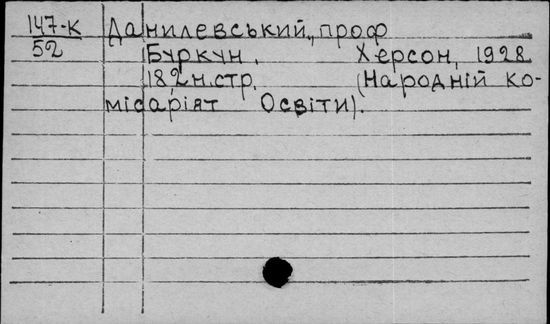 147-К Данилевський, проф
52 Буркун. Херсон, 1928
182н.стр. (Народній ко-
місаріят Освіти).